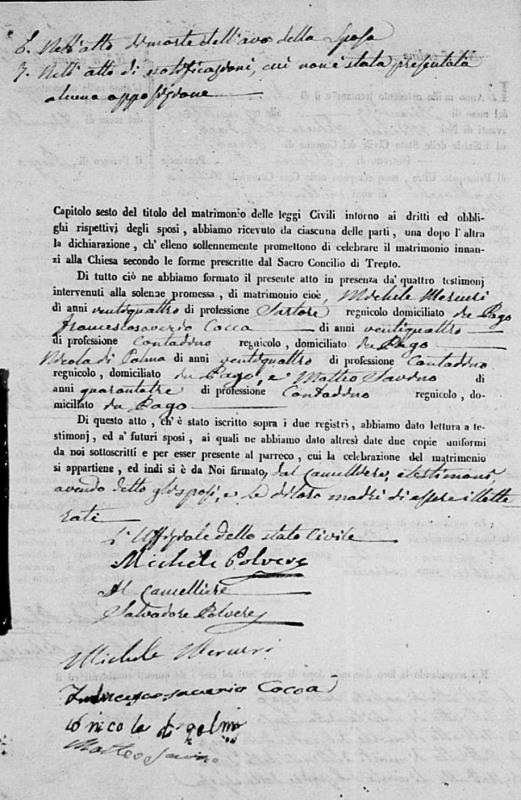 6. Nell'atto di morte dell'avo della Sposa
7. Nell'atto di notificazioni, cui non è stata presentata
alcuna opposizione
Capitolo sesto del titolo del matrimonio delle leggi Civili intorno ai dritti ed obbli-
ghi rispettivi degli sposi, abbiamo ricevuto da ciascuna delle parti, una dopo l'altra
la dichiarazione, ch'elleno sollennemente promettono di celebrare il matrimonio innan-
zi alla Chiesa secondo le forme prescritte dal Sacro Concilio di Trento.
Di tutto ciò ne abbiamo formato il presente atto in presenza da' quattro testimonj
intervenuti alla solenne promessa, di matrimonio cioè, Michele Mercuri
di anni ventiquattro di professione Sartore regnicolo domiciliato in Pago
Francescosaverio Cocca di anni ventiquattro
di professione Contadino regnicolo, domiciliato in Pago
Nicola di Palma di anni ventiquattro di professione Contadino
regnicolo, domiciliato in Pago, e Matteo Savino di
anni quarantatre di professione Contadino regnicolo, do-
miciliato in Pago
Di questo atto, ch'è stato iscritto sopra i due registri, abbiamo dato lettura a te-
stimonj, ed a' futuri sposi, ai quali ne abbiamo dato altresì date due copie uniformi
da noi sottoscritti e per esser presente al parreco, cui la celebrazione del matrimonio
si appartiene, ed indi si è da Noi firmato, dal Cancelliere, e testimoni,
avendo detto gli sposi, e le di loro madri di essere illette
rate
L'Uffiziale dello stato Civile
Michele Polvere
Il Cancelliere
Salvadore Polvere
Michele Mercuri
Francesco saverio Cocca
io nicola di palma
Matteo Savino